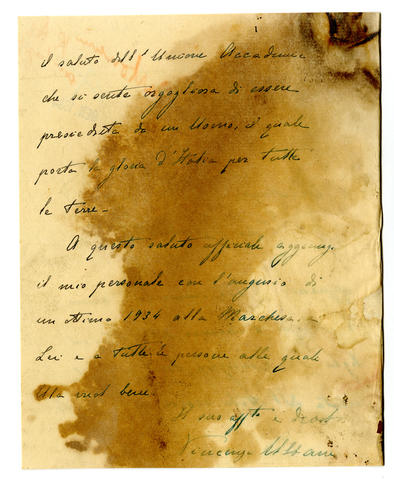 il saluto dell'Unione Accademica
che si sente orgogliosa di essere
presieduta da un Uomo, il quale
porta la gloria d'Italia per tutte
le terre.
A questo saluto ufficiale aggiungo
il mio personale con l'augurio di
un ottimo 1934 alla Marchesa, a
Lei e a tutte le persone alle quale
Ella vuol bene.
Il suo aff.to e
Vincenzo